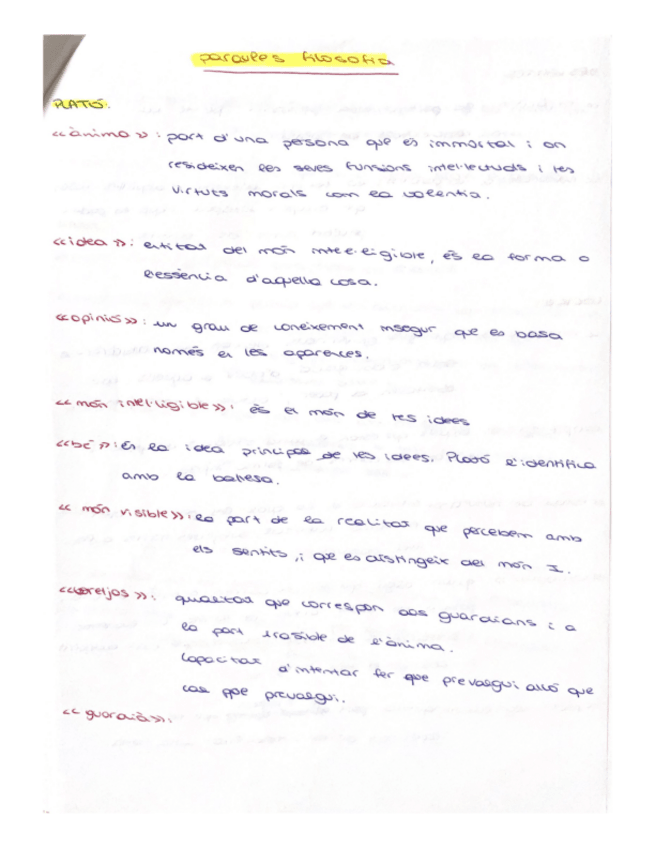 paraules filosofia
PLATÓ:
«ànima»: part d'una persona que és immortal i on
resideixen les seves funcions intel·lectuals i les
virtuts morals com la valentia.
«idea»: entitat del món intel·ligible, és la forma o
l'essència d'aquella cosa.
«opinió»: un grau de coneixement insegur que es basa
només en les aparences.
«món intel·ligible»: és el món de les idees
«bé»: és la idea principal de les idees. Plató l'identifica
amb la bellesa.
«món visible»: la part de la realitat que percebem amb
els sentits, i que es distingeix del món I.
«coratjós»: qualitat que correspon als guardians i a
la part irascible de l'ànima.
Capacitat d'intentar fer que prevalgui allò que
cal que prevalgui.
«guardià»: